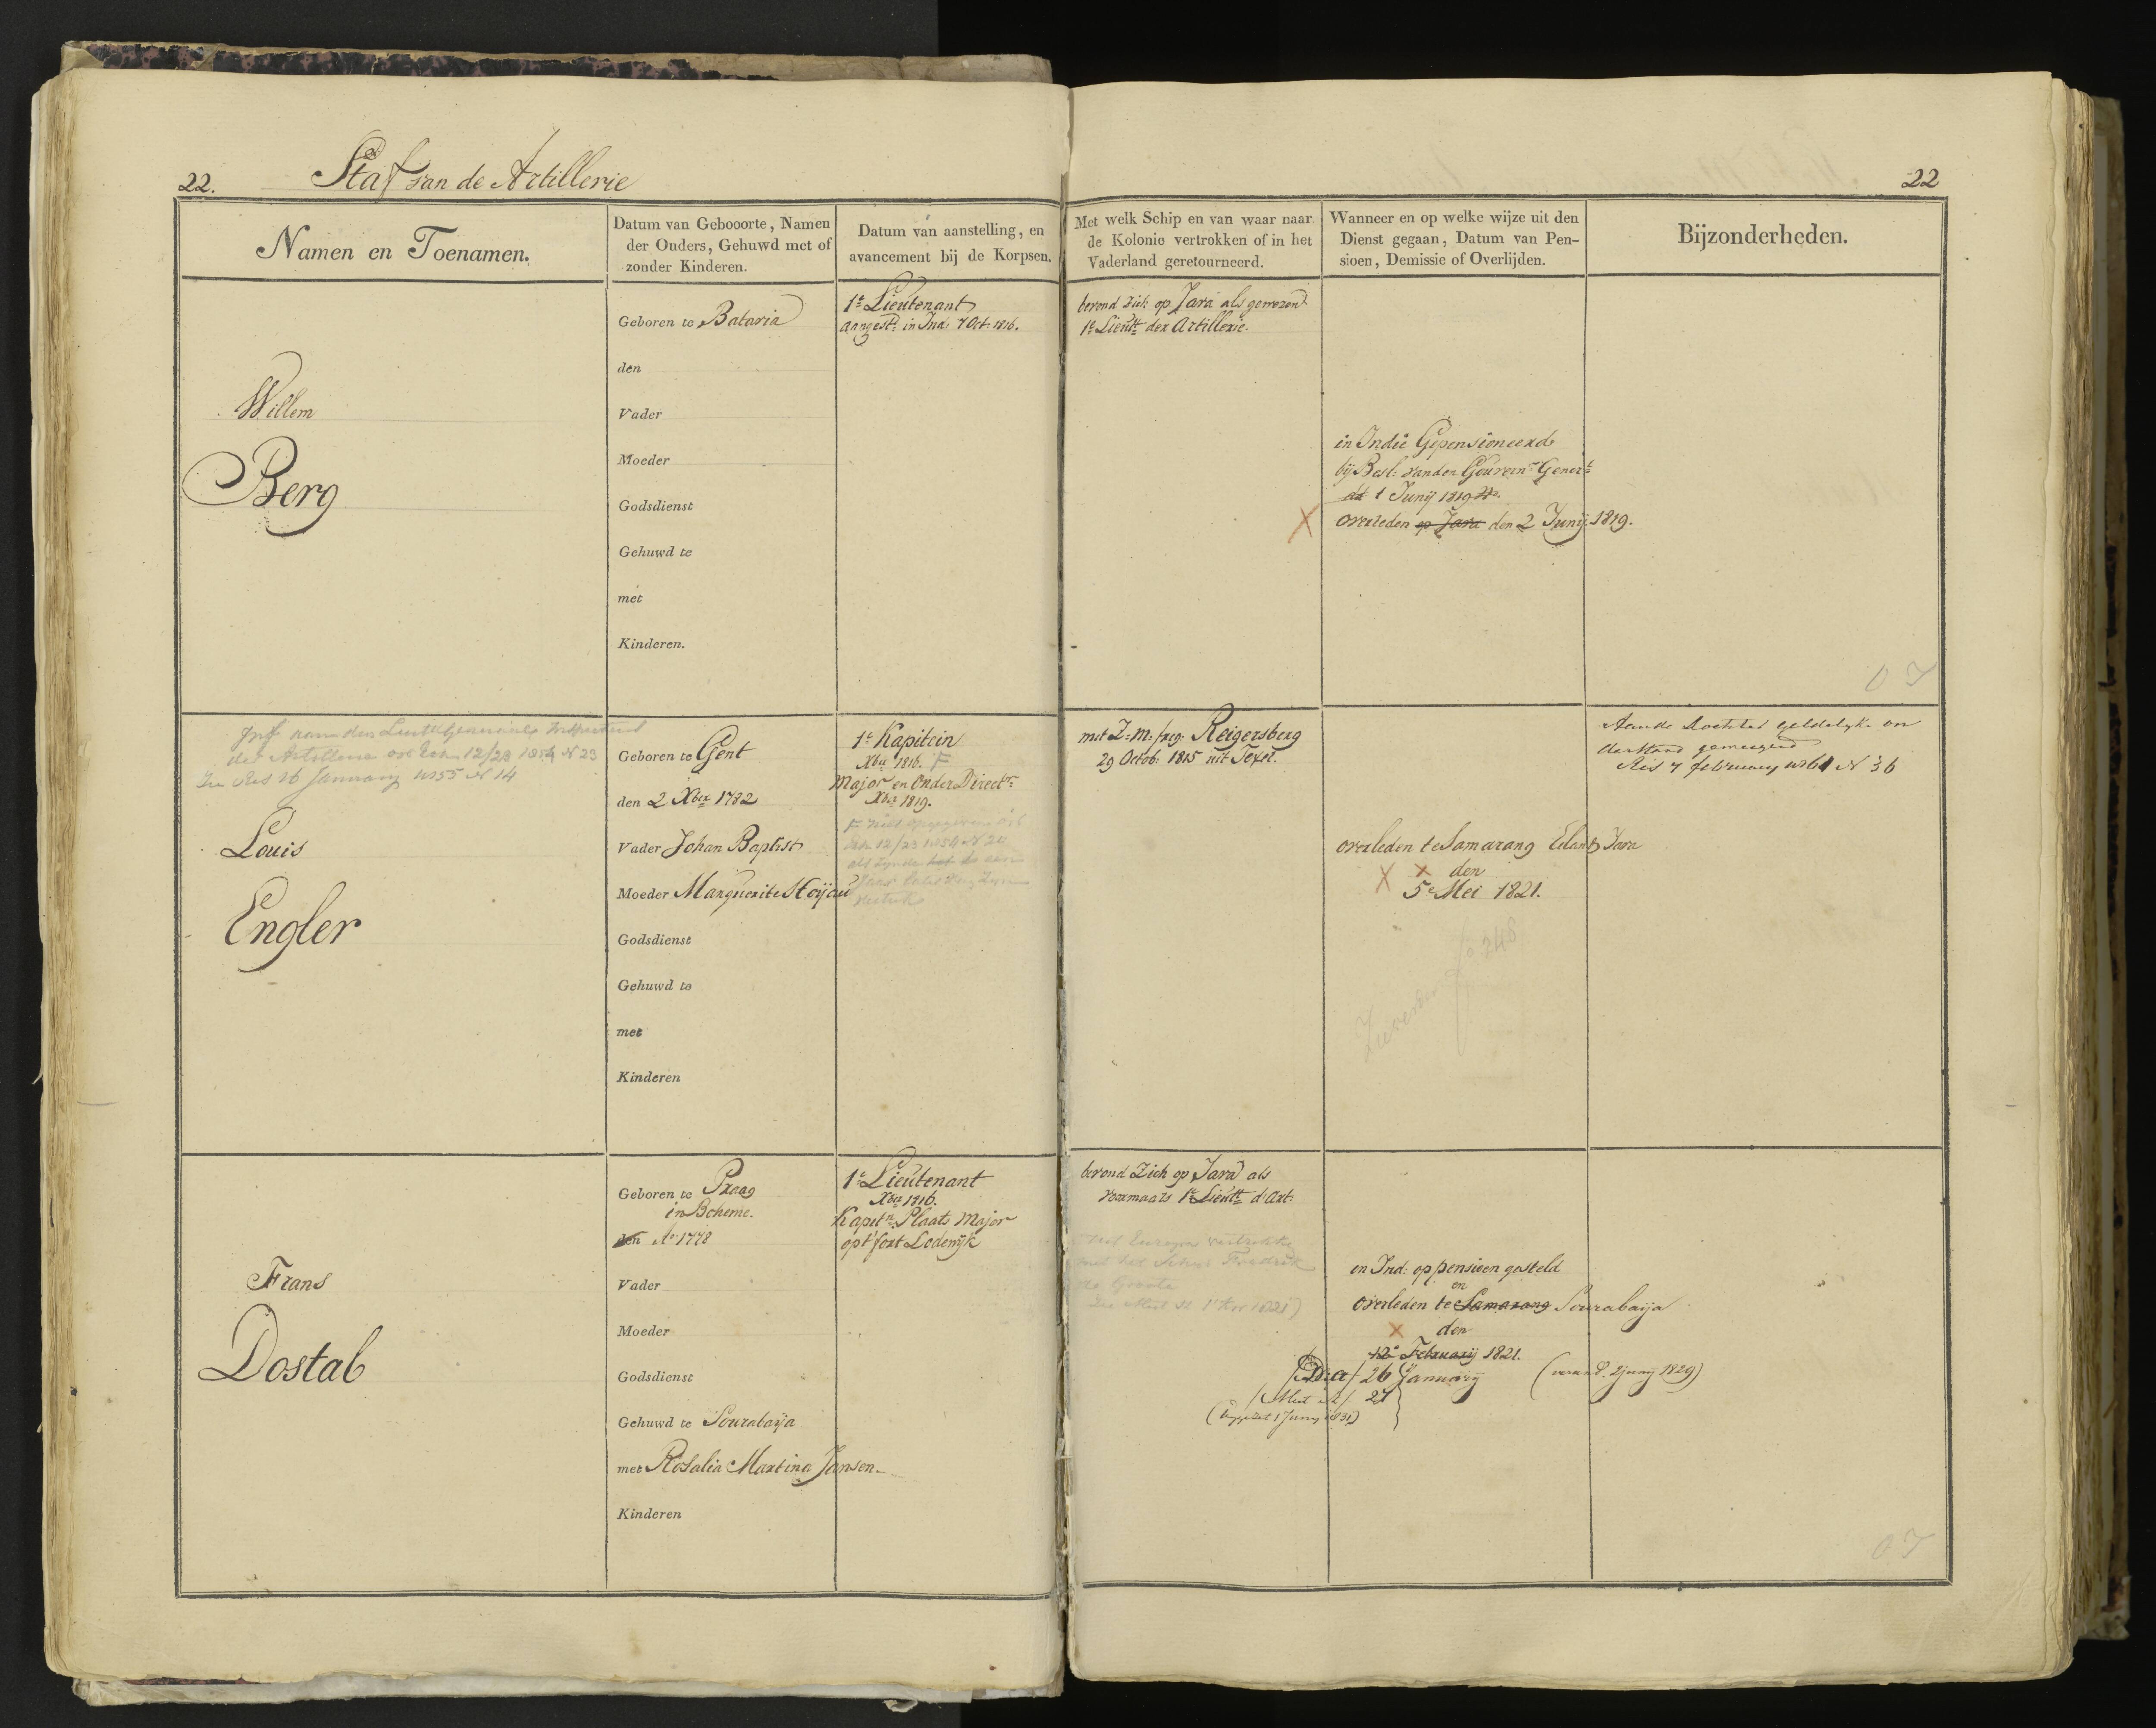 22.
Staf van de Artillerie
22
Namen en Toenamen.
Datum van Gebooorte, Namen
der Ouders, Gehuwd met of
zonder Kinderen.
Datum van aanstelling, en
avancement bij de Korpsen.
Met welk Schip en van waar naar
de Kolonie vertrokken of in het
Vaderland geretourneerd.
Wanneer en op welke wijze uit den
Dienst gegaan, Datum van Pen-
sioen, Demissie of Overlijden.
Bijzonderheden.
Willem
Berg
Geboren te Batavia
den
Vader
Moeder
Godsdienst
Gehuwd te
met
Kinderen.
1e Lieutenant
aangest: in Ind: 7 Oct. 1816.
bevond zich op Java als gewezend
1e Lieutt der Artillerie.
in Indie Gepensioneerd
bij Besl: van den Gouvern: Generl
dd 1 Junij 1819
overleden op Java den 2 Junij 1819.
der Artillerie 12/23 1854 N 23
Zie Res 26 Januarij 1855 N 14
Louis
Engler
Geboren te Gent
den 2 Xber 1782
Vader Johan Baptist
Moeder Marguerite
Godsdienst
Gehuwd te
met
Kinderen
1e Kapitein
Xber 1816. F
Major en Onder Directr
Xber 1819.
12/23 1854 N 20
met Z: M: freg: Reigersberg
29 Octob: 1815 uit Texel.
overleden te Samarang Eiland Java
den
5e Mei 1821.
248
Aan de dochter geldelyk on
derstand geweigerd
Res 7 february 1861 N 36
Frans
Dostal
Geboren te Praag
in Boheme.
den Ao 1778
Vader
Moeder
Godsdienst
Gehuwd te Sourabaija
met Rosalia Martina Jansen.
Kinderen
1e Lieutenant
Xber 1816.
Kapitn Plaats Major
op t fort Lodewijk
bevond Zich op Java als
voormaals 1e Lieutt d'Art:
met het Schip Fredrik
de Groote
in Ind: op pensioen gesteld
en
overleden te Samarang Sourabaija
den
12e Februarij 1821.
26 Januarij
27